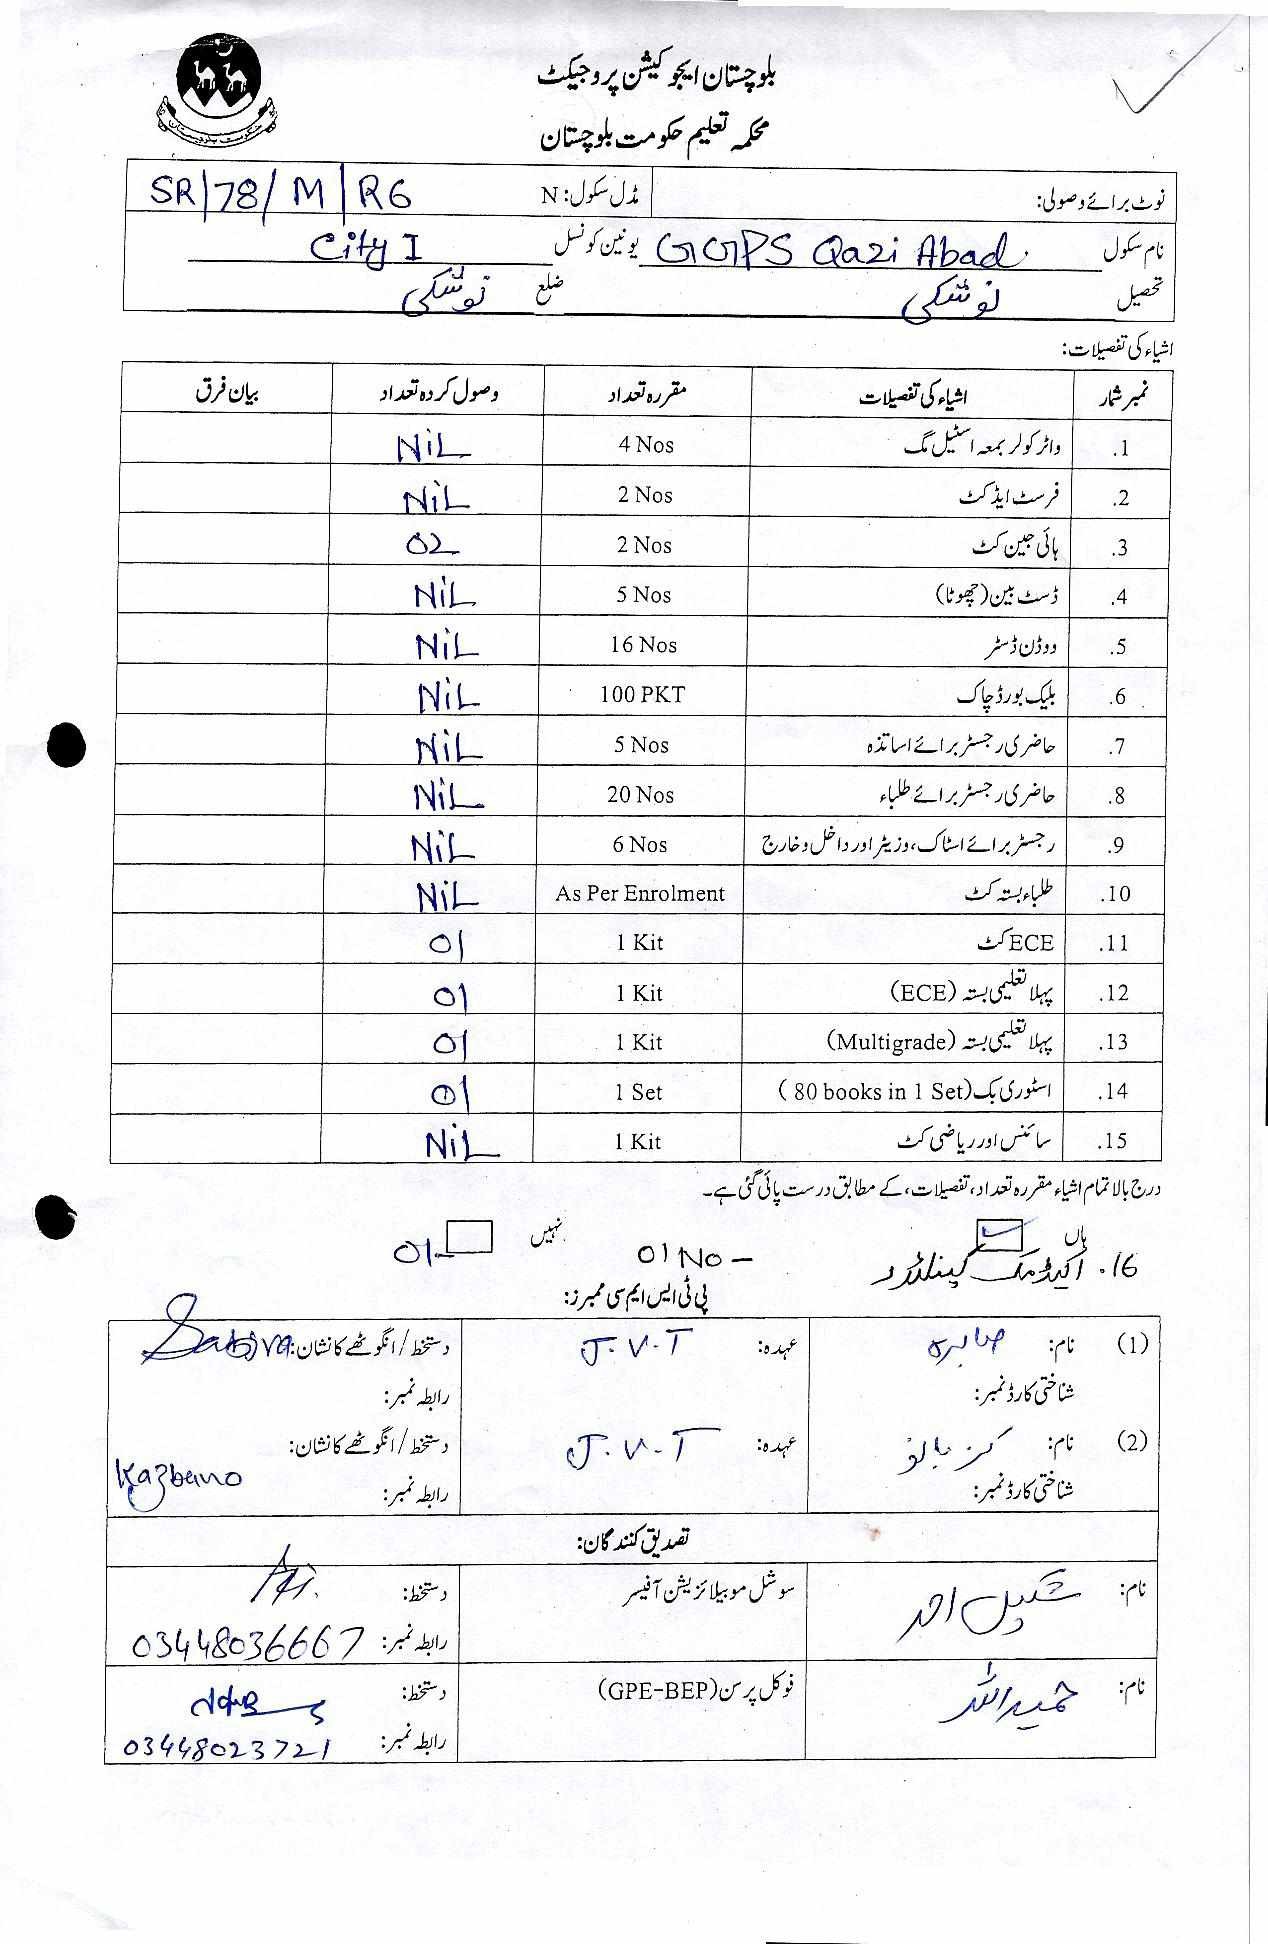 حکومت بلوچستان
بلوچستان ایجوکیشن پروجیکٹ
محکمہ تعلیم حکومت بلوچستان
نوٹ برائے وصولی: مڈل سکول: N SR/78/M/R6
نام سکول GGPS Qazi Abad یونین کونسل City I
تحصیل نوشکی ضلع نوشکی
اشیاء کی تفصیلات:
نمبر شمار اشیاء کی تفصیلات مقررہ تعداد وصول کردہ تعداد بیان فرق
1. واٹر کولر بمعہ اسٹیل مگ 4 Nos NiL
2. فرسٹ ایڈ کٹ 2 Nos NiL
3. ہائی جین کٹ 2 Nos 02
4. ڈسٹ بین (چھوٹا) 5 Nos NiL
5. ووڈن ڈسٹر 16 Nos NiL
6. بلیک بورڈ چاک 100 PKT NiL
7. حاضری رجسٹر برائے اساتذہ 5 Nos NiL
8. حاضری رجسٹر برائے طلباء 20 Nos NiL
9. رجسٹر برائے اسٹاک، وزیٹر اور داخل و خارج 6 Nos NiL
10. طلباء بستہ کٹ As Per Enrolment NiL
11. ECE کٹ 1 Kit 01
12. پہلا تعلیمی بستہ (ECE) 1 Kit 01
13. پہلا تعلیمی بستہ (Multigrade) 1 Kit 01
14. اسٹوری بک (80 books in 1 Set) 1 Set 01
15. سائنس اور ریاضی کٹ 1 Kit NiL
درج بالا تمام اشیاء مقررہ تعداد، تفصیلات، کے مطابق درست پائی گئی ہے۔
ہاں نہیں
16. اکیڈمک کیلنڈر 01 No - 01
پی ٹی ایس ایم سی ممبرز:
(1) نام: صابرہ عہدہ: J.V.T دستخط/انگوٹھے کا نشان: Sabira
شناختی کارڈ نمبر: رابطہ نمبر:
(2) نام: کز بانو عہدہ: J.V.T دستخط/انگوٹھے کا نشان: Kazbano
شناختی کارڈ نمبر: رابطہ نمبر:
تصدیق کنندگان:
نام: شکیل احمد سوشل موبیلائزیشن آفیسر دستخط:
رابطہ نمبر: 03448036667
نام: حمید اللہ فوکل پرسن (GPE-BEP) دستخط:
رابطہ نمبر: 03448023721